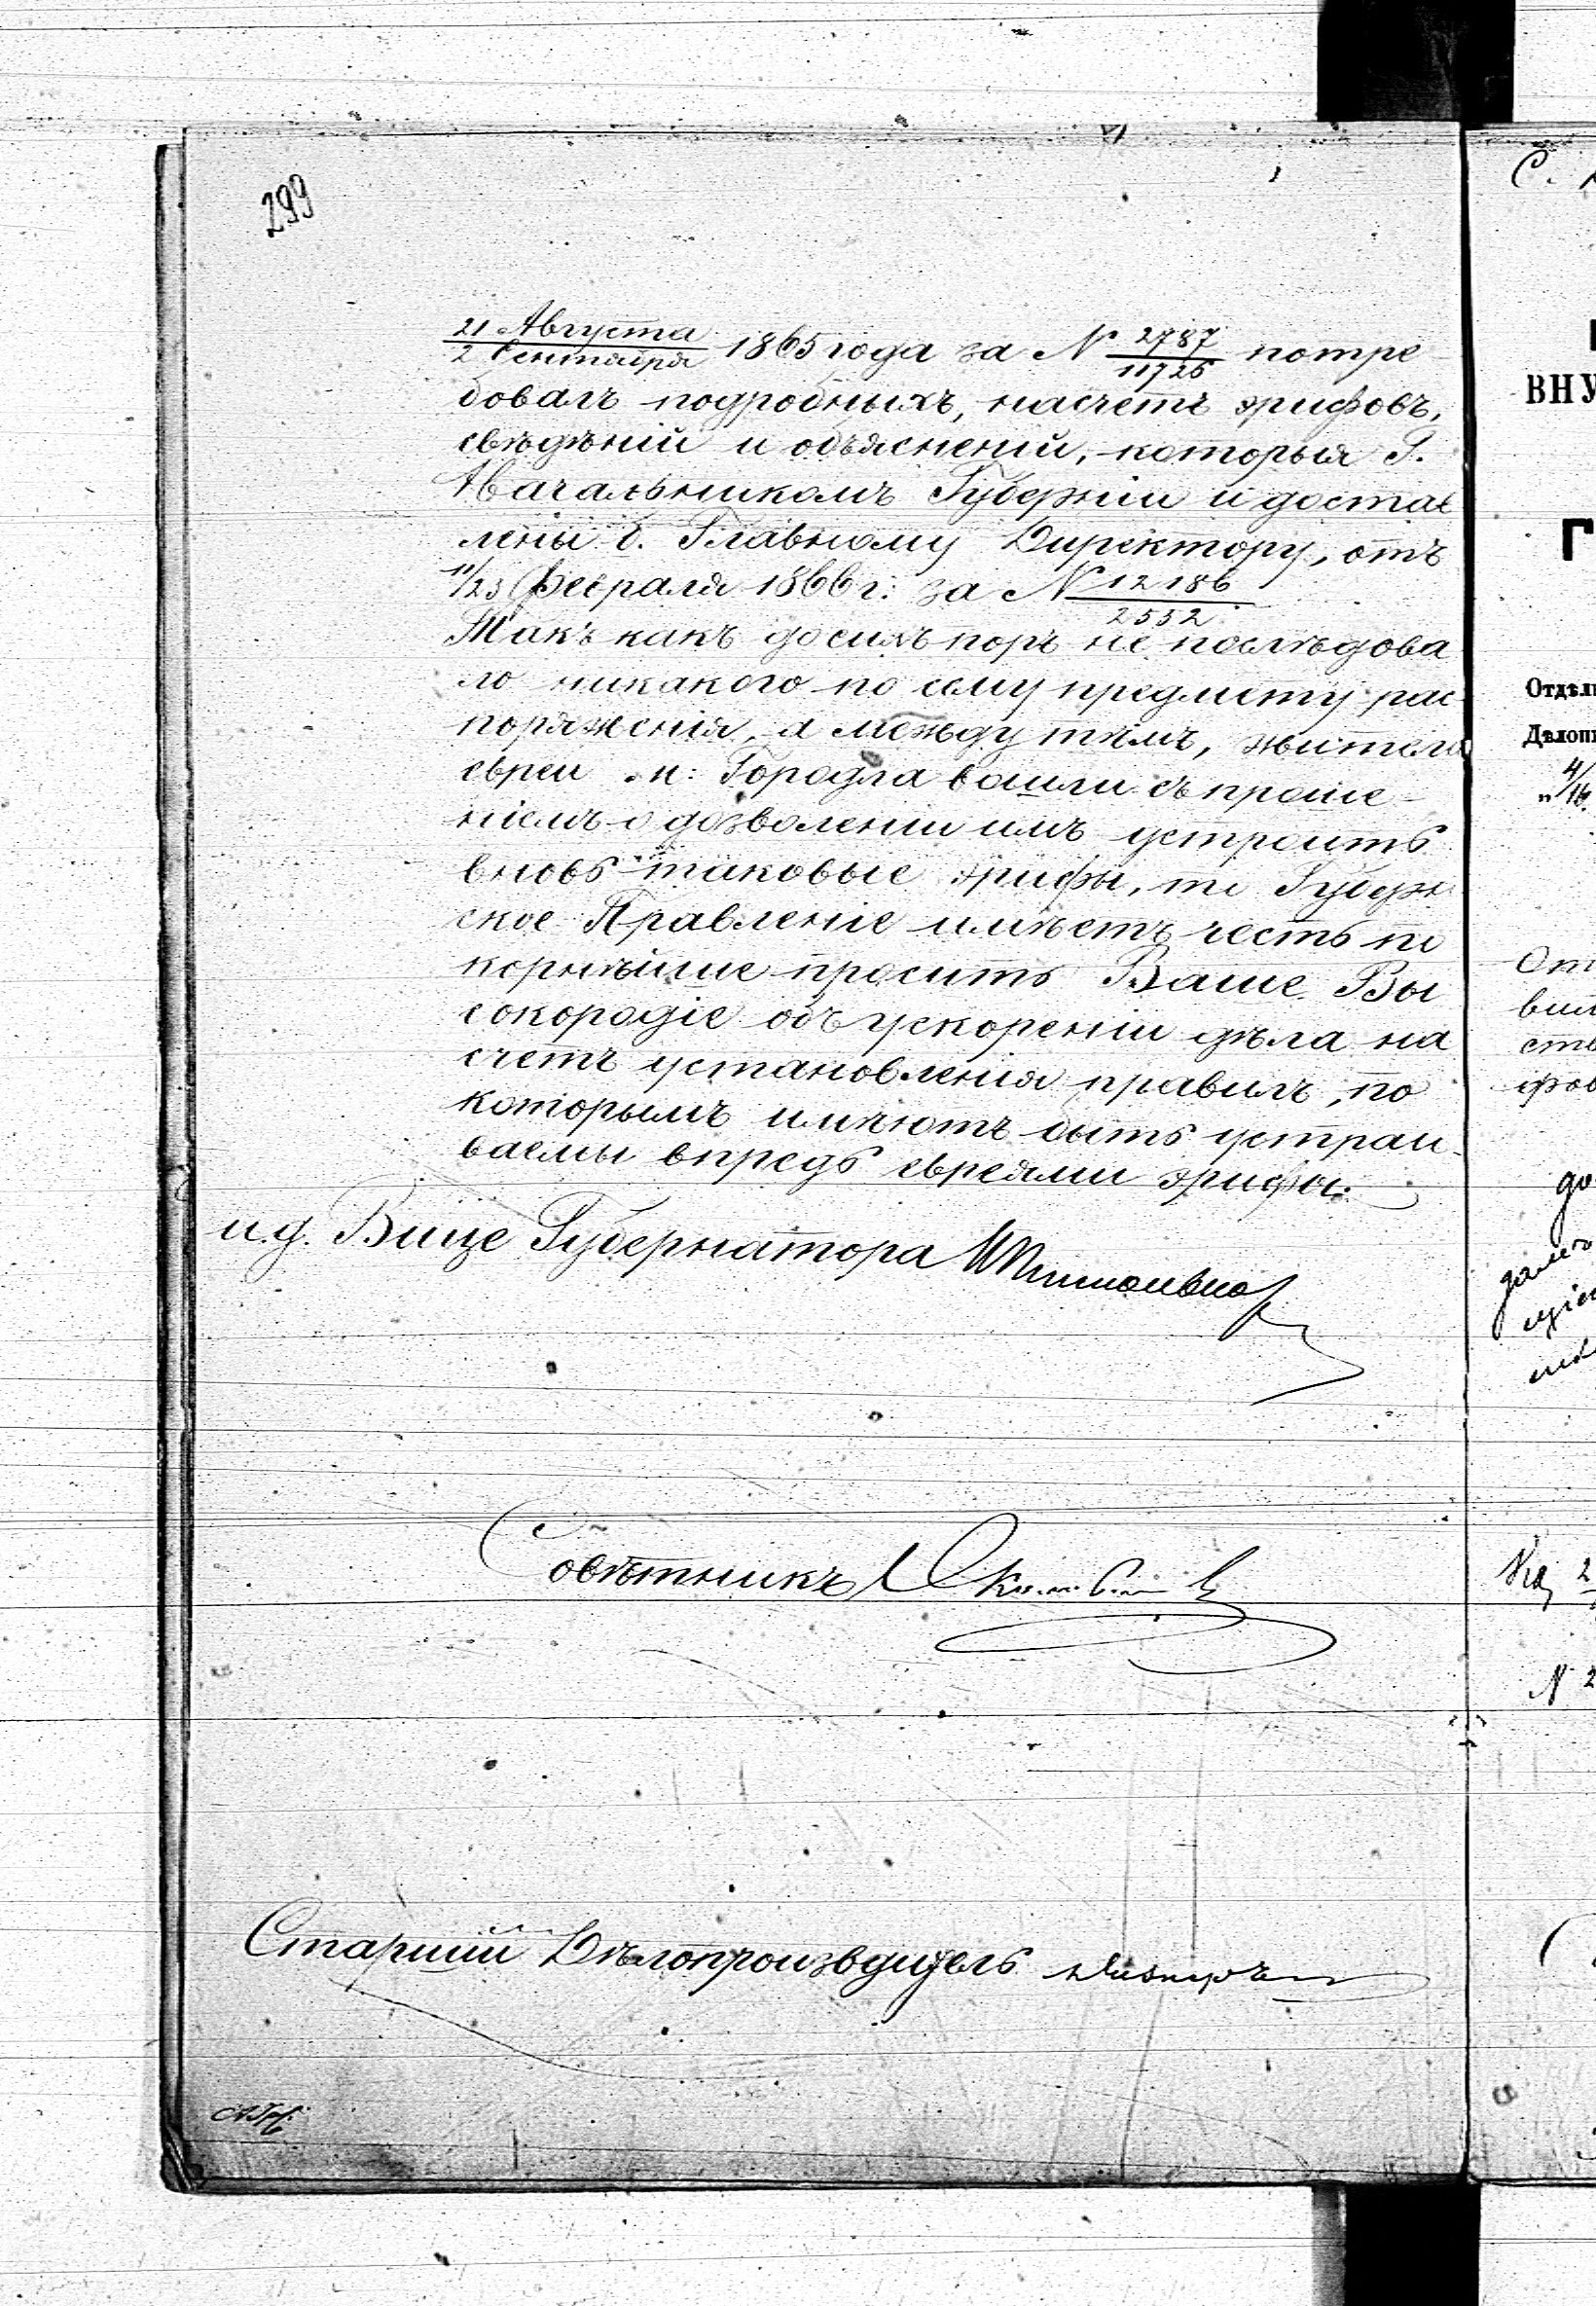 299
21 Августа / 2 Сентября 1865 года за N 2787/11726 потре
бовалъ подробныхъ, насчетъ эрифовъ,
свѣдѣній и объясненій, которыя Г.
Начальникомъ Губерніи и достав
лены б. Главному Директору, отъ
11/23 Февраля 1866 г: за N 12186/2552
Такъ какъ досихъ поръ не послѣдова
ло никакого по сему предмету рас-
поряженія, а между тѣмъ, жители
евреи м: Городла вошли съ проше-
ніемъ о дозволеніи имъ устроить
вновь таковые эрифы, то Губерн
ское Правленіе имѣетъ честь по
корнѣйше просить Ваше Вы
сокородіе объ ускореніи дѣла на
счетъ установленія правилъ, по
которымъ имѣютъ быть устраи-
ваемы впредь евреями эрифы.
и.д. Вице Губернатора
Совѣтникъ
Старшій Дѣлопроизводитель
С.
ВНУ
Г
Отдѣл
Дѣлоп
„ 4/16
От
вил
ств
фов
N 2